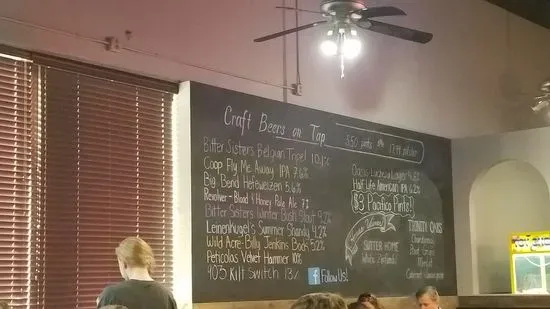 Craft Beers on Tap
5.50 pints 17.99 pitcher
Bitter Sisters Belgian Tripel 10.1%
Coop Fly Me Away IPA 7.6%
Big Bend Hefeweizen 5.6%
Revolver - Blood & Honey Pale Ale 7%
Bitter Sisters Winter Bush Stout 9.2%
Leinenkugel's Summer Shandy 4.2%
Wild Acre Billy Jenkins Bock 5.2%
Peticolas Velvet Hammer 10%
903 Kilt Switch 13%
Follow Us!
Lager 4.6%
Half Life American IPA 6.2%
$3 Pacifico Pints!!
SUTTER HOME
White Zinfandel
TRINITY OAKS
Chardonnay
Pinot Grigio
Merlot
Cabernet Sauvignon